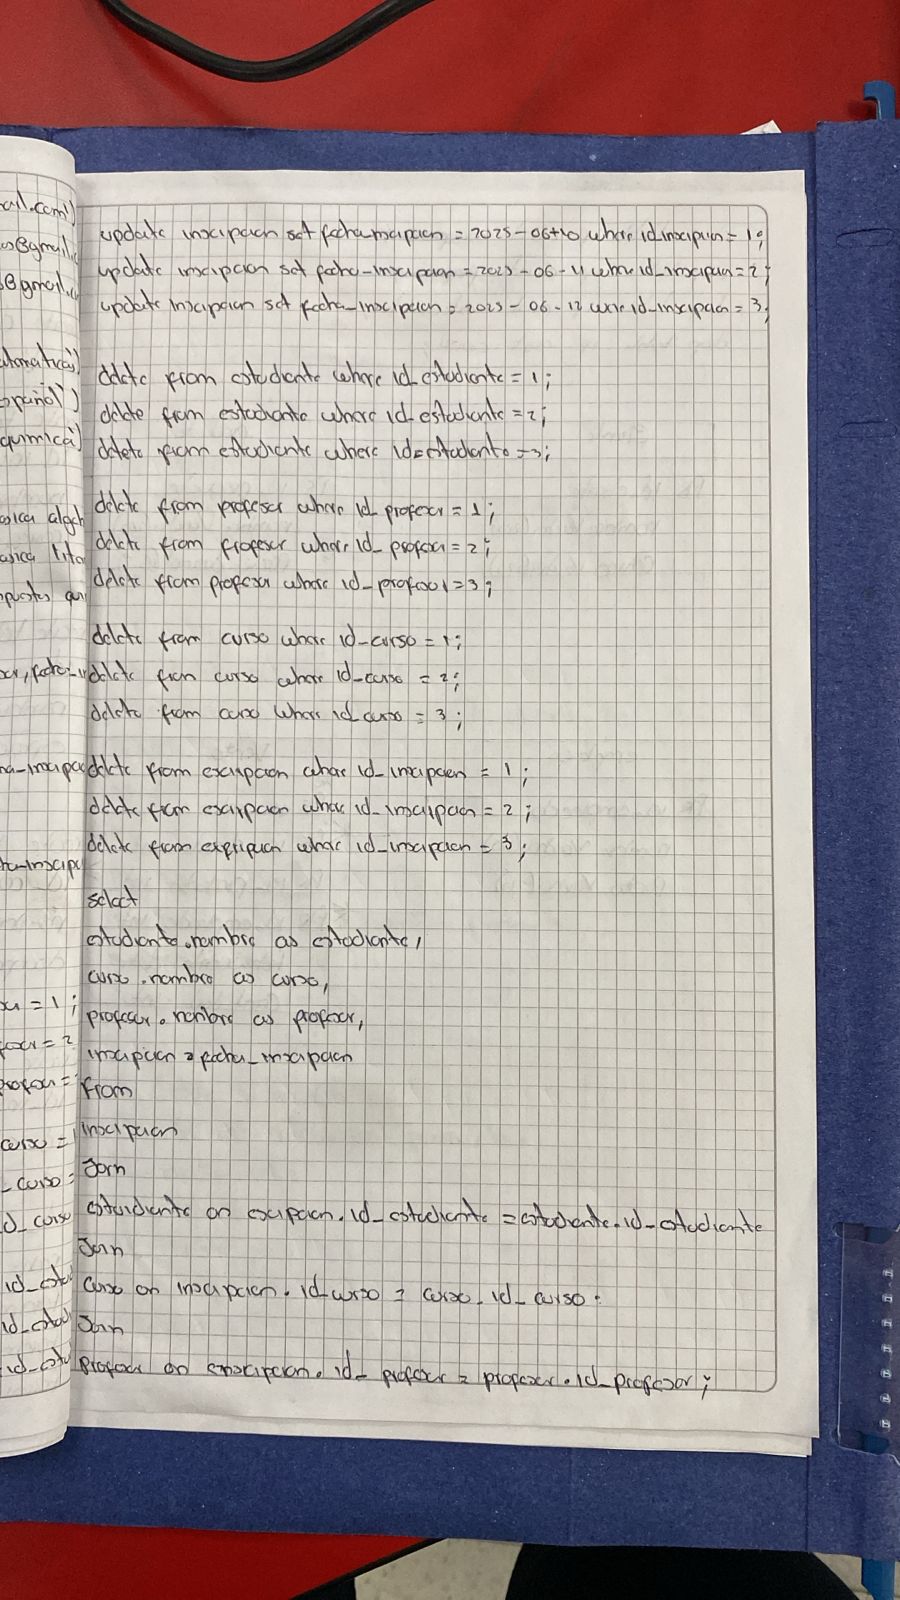 ail.com')
o@gmail.
@gmail.
update inscripcion set fecha inscripcion = 2025-06-10 where id_inscripcion = 1;
update inscripcion set fecha-inscripcion = 2025-06-11 where id_inscripcion = 2;
update inscripcion set fecha_inscripcion = 2025-06-12 where id_inscripcion = 3;
español')
quimica')
delete from estudiante where id_estudiante = 1;
delete from estudiante where id_estudiante = 2;
delete from estudiante where id=estudiante = 3;
delete from profesor where id_profesor = 1;
delete from profesor where id_profesor = 2;
delete from profesor where id_profesor = 3;
delete from curso where id_curso = 1;
delete from curso where id_curso = 2;
delete from curso where id_curso = 3;
delete from escripcion where id_inscripcion = 1;
delete from escripcion where id_inscripcion = 2;
delete from where id_inscripcion = 3;
select
estudiante.nombre as estudiante,
curso.nombre as curso,
profesor.nombre as profesor,
inscripcion = fecha_inscripcion
from
inscripcion
= 1;
= 2
curso =
_curso =
d_curso
id_estu
id_estu
id_estu
Join
estuidiante on escripcion.id_estudiante = estudiante.id_estudiante
Join
curso on inscripcion.id_curso = curso.id_curso.
Join
profesor on enscripcion.id_profesor = profesor.id_profesor;